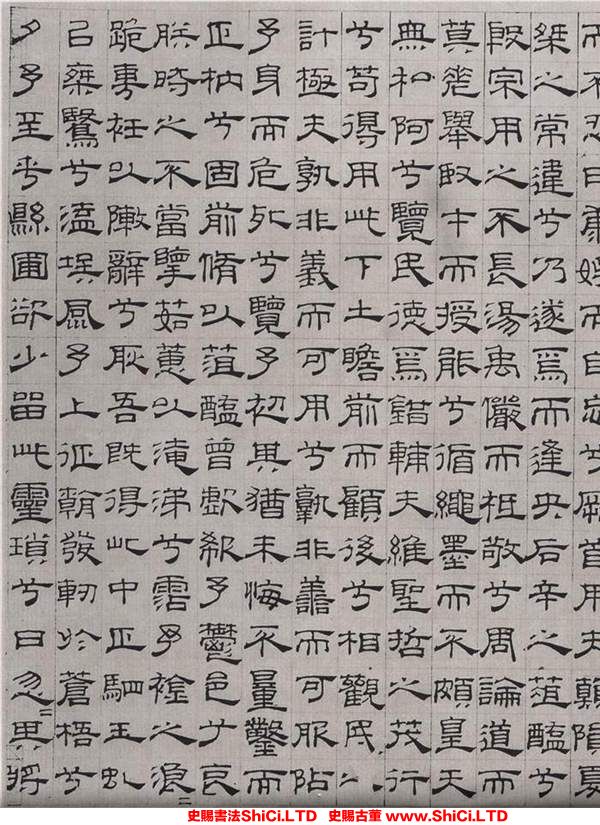 而不忍日康娛而自忘兮厥首用夫顛隕夏
桀之常違兮乃遂焉而逢央后辛之菹醢兮
殷宗用之不長湯禹儼而祗敬兮周論道而
莫差舉臤才而授能兮循繩墨而不頗皇天
無私阿兮覽民德焉錯輔夫維聖哲之茂行
兮苟得用此下土瞻前而顧後兮相觀民之
計極夫孰非義而可用兮孰非善而可服阽
予身而危死兮覽予初其猶未悔不量鑿而
正枘兮固前脩以菹醢曾歔欷予鬱邑兮哀
朕時之不當擥茹蕙以淹涕兮霑予襟之浪=
跪敷衽以陳辭兮耿吾既得此中正駟玉虬
以椉鷖兮溘埃風予上征朝發軔於蒼梧兮
夕予至乎縣圃欲少留此靈瑣兮日忽=其將
史賜書法ShiCi.LTD 史賜古董 www.ShiCi.LTD